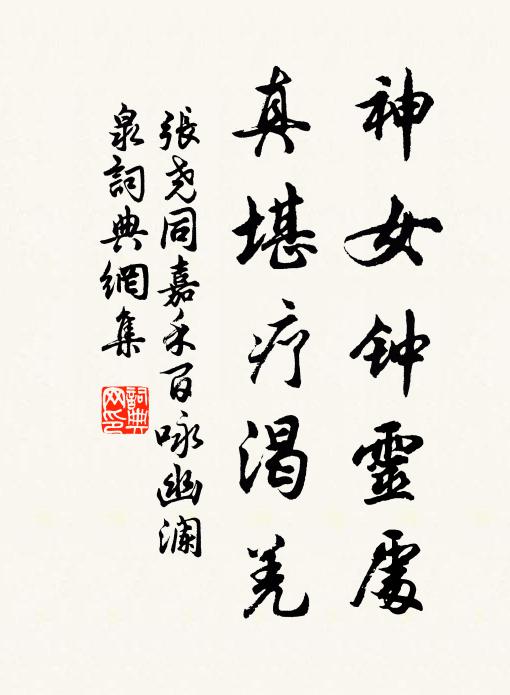 神女钟靈處
真堪疗渴羌
張尧同嘉禾百咏幽澜
泉詞典網集
詞典网印